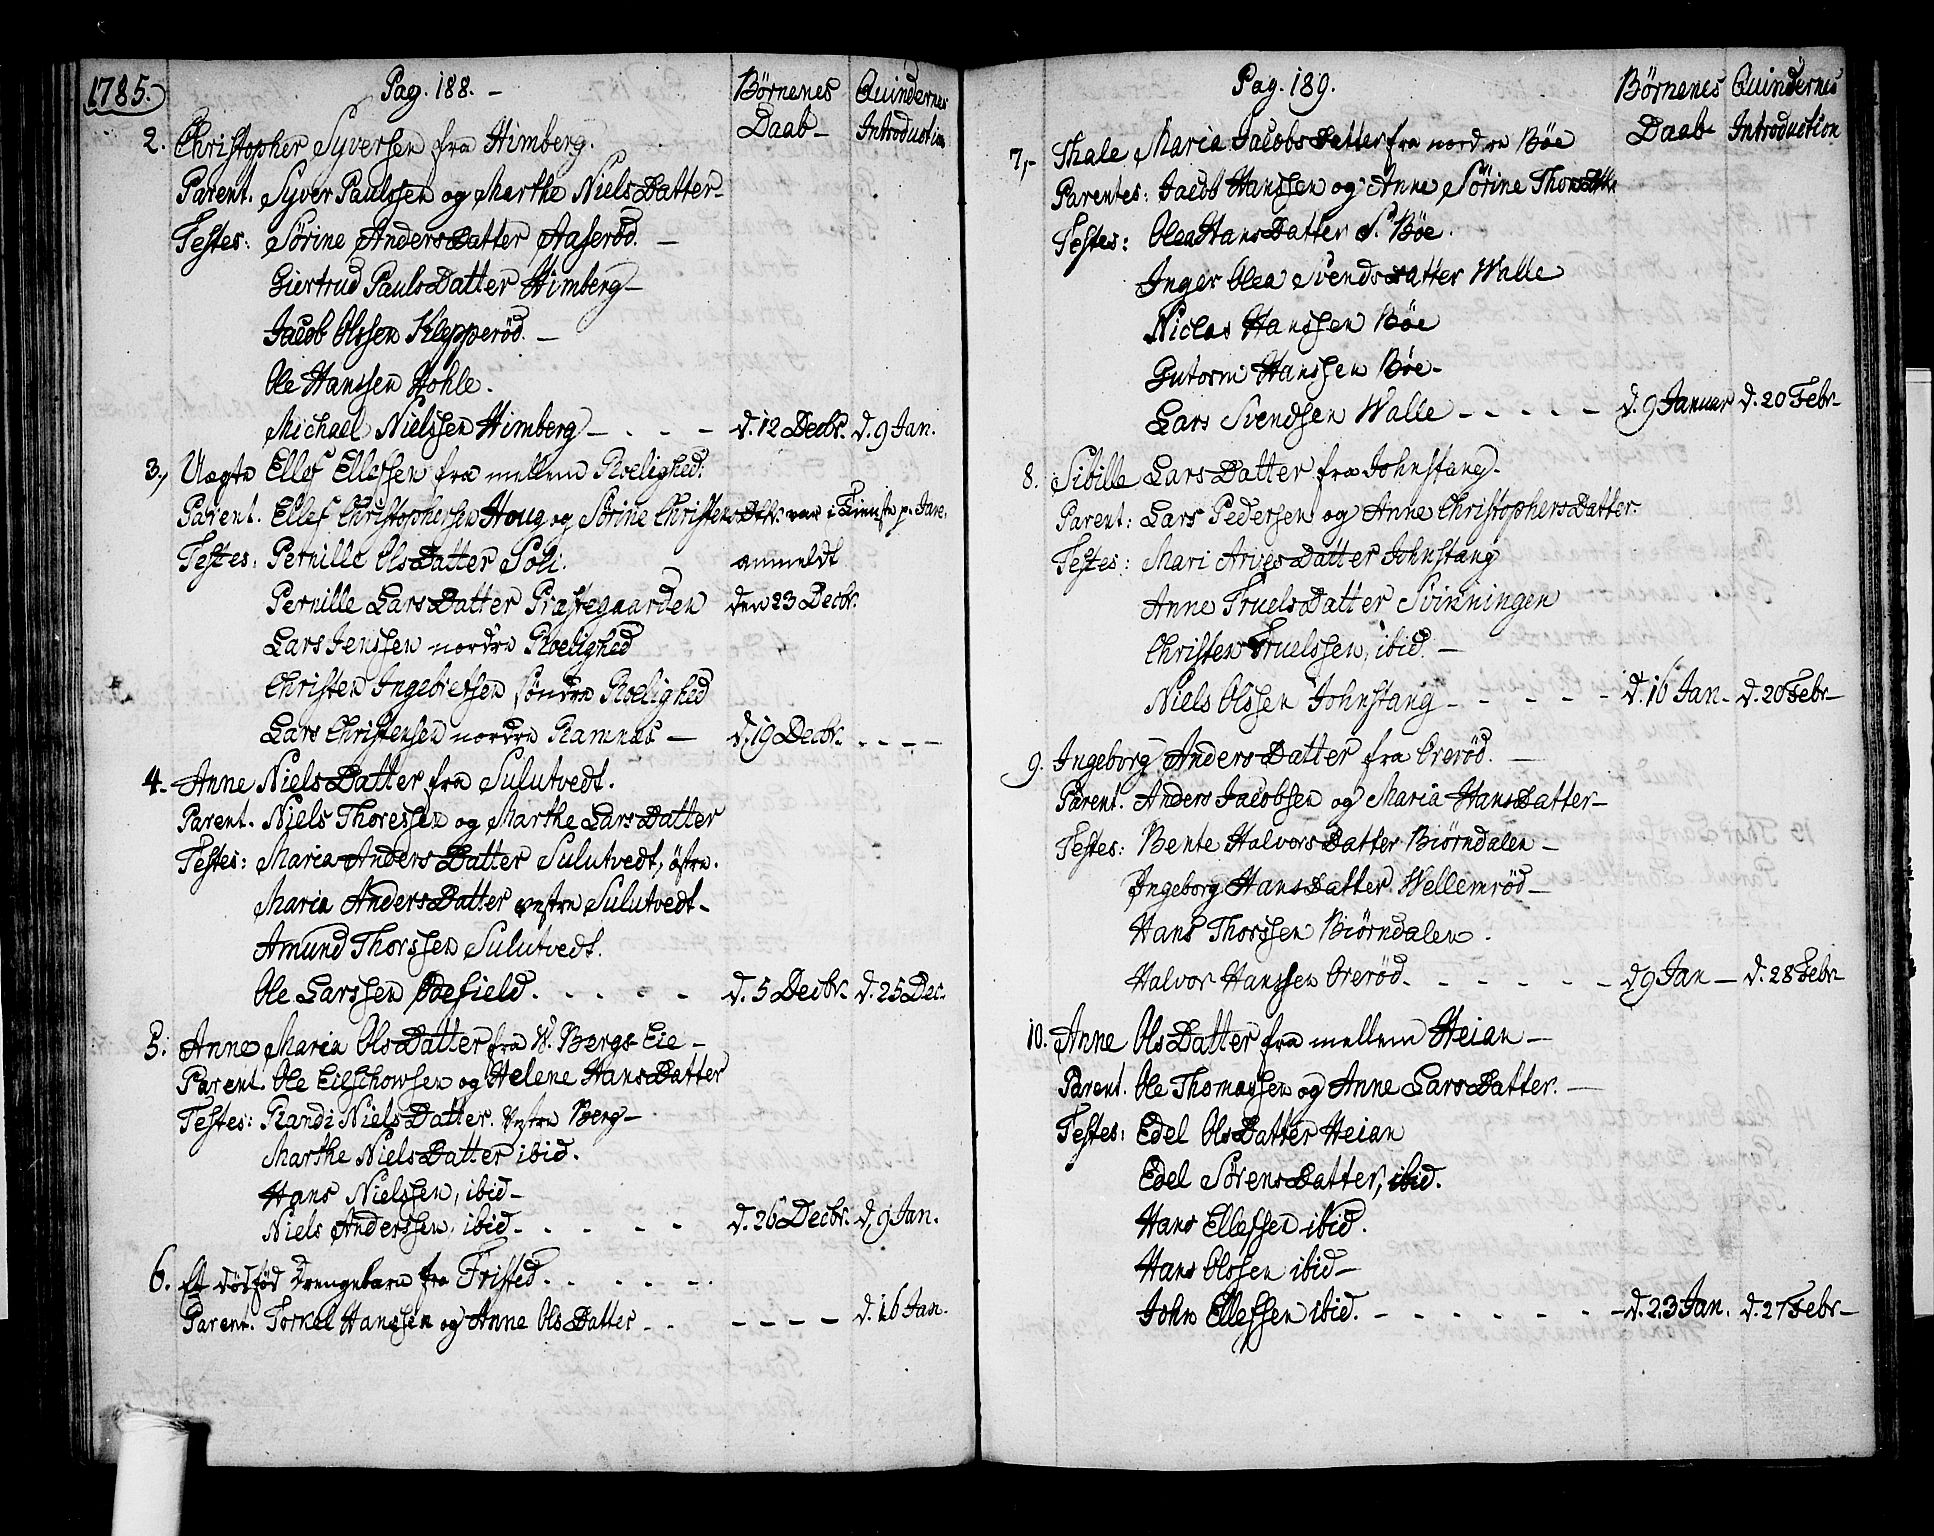 1785.
Pag. 188. -
Børnenes Daab-
Quindernes Introduction
2. Christopher Syversen fra Himberg.
Parent. Syver Paulssen og Marthe NielsDatter-
Testes: Sörine AndersDatter Aaseröd. -
Giertrud PaulsDatter Himberg-
Jacob Olssen Klepperöd. -
Ole Hanssen Hohle.
Michael Nielssen Himberg - . - - d. 12 Decbr. d. 9 Jan.
3, Uægte Ellef Ellefsen fra mellem Roelighed:
Parent. Ellef Christophersen Houg og Sörine ChristensDtr. var i Tieneste p.
Testes: Pernille OlsDatter Soli. anmeldt
Pernille LarsDatter Præstegaarden den 23 Decbr.
Lars Jenssen nordre Roelighed
Christen Ingebretsen söndre Roelighed
Lars Christensen nordre Ramnæs - d. 19 Decbr. - - - -
4. Anne NielsDatter fra Sulutvedt.
Parent. Niels Thoressen og Marthe LarsDatter
Testes: Maria AndersDatter Sulutvedt, östre.
Maria AndersDatter vestre Sulutvedt-
Amund Thorssen Sulutvedt.
Ole Larssen Ödefield. . - - - d. 5 Decbr. d. 25 Dec.
5. Anne Maria OlsDatter fra W. Bergs Eie -
Parent. Ole Eilschowsen og Helene HansDatter
Testes: Randi NielsDatter. Vestre Berg-
Marthe NielsDatter ibid.
Hans Nielssen, ibid-
Niels Anderssen, ibid- - - - - d. 26 Decbr. d. 9 Jan.
6. Et dödfød Drengebarn fra Fristed. . - - - -
Parent. Torkel Hanssen og Anne OlsDatter - . - - - - d. 16 Jan.
Pag. 189.
Børnenes Daab-
Quindernes Introduction
7,- Thale Maria JacobsDatter fra nordre Böe
Parentes: Jacob Hanssen og Anne Sörine ThorsDttr.
Testes: Olea HansDatter S. Böe.
Inger Olea SvendsDatter Walle
Niclas Hanssen Böe
Gutorm Hanssen Böe-
Lars Svendsen Walle - - - - - d. 9 Januar d. 20 Febr-
8. Sibille LarsDatter fra Johnstang.
Parent: Lars Pedersen og Anne ChristophersDatter-
Testes: Mari ArvesDatter Johnstang
Anne TruelsDatter Svinningen
Christen Truelssen, ibid. -
Niels Olssen Johnstang - - - - - d. 16 Jan- d. 20 Febr-
9. Ingeborg AndersDatter fra Oreröd. -
Parent. Anders Jacobsen og Maria HansDatter-
Testes: Bente HalvorsDatter Biörndalen-
Ingeborg HansDatter. Wellemröd-
Hans Thorssen Biörndalen.
Halvor Hanssen Oreröd. - - - - - - d 9 Jan - d. 28 Febr-
10. Anne OlsDatter fra mellem Heian -
Parent. Ole Thomassen og Anne LarsDatter. -
Testes: Edel OlsDatter Heian
Edel SörensDatter, ibid.
Hans Ellefsen ibid.
Hans Olssen ibid-
John Ellefsen ibid. - - - - - - - d. 23 Jan. d. 27 Febr-